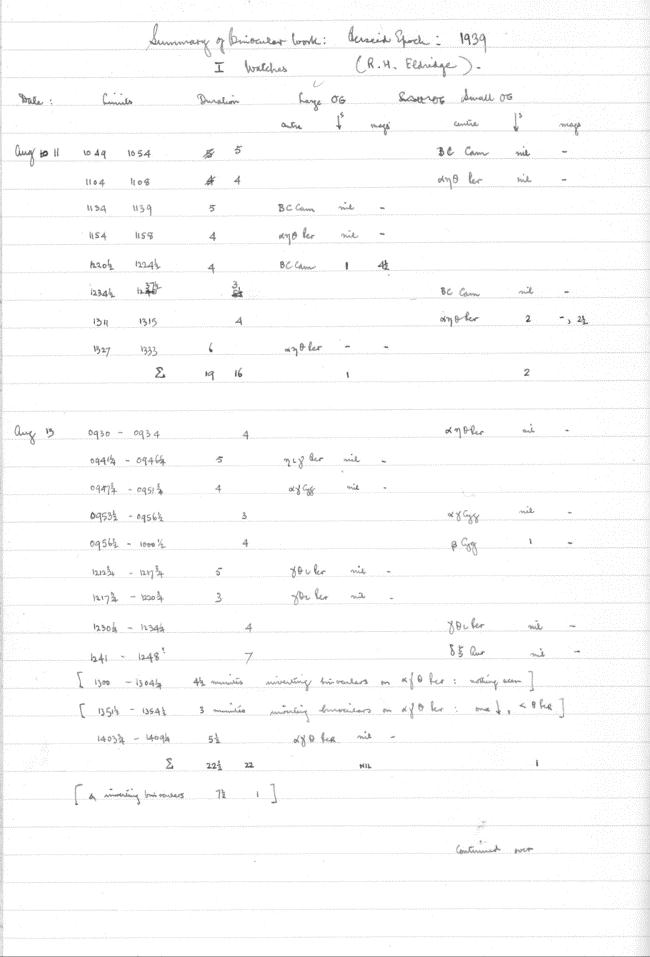 Summary of Binocular Work: Perseid Epoch: 1939
I Watches (R.H. Eldridge).
Date: Limits Duration Large OG Small OG
centre ↓s mags centre ↓s mags
Aug 11 1049 1054 5 BC Cam nil -
1104 1108 4 αηθ Per nil -
1134 1139 5 BC Cam nil -
1154 1158 4 αηθ Per nil -
1220½ 1224½ 4 BC Cam 1 4½
1234½ 1237½ 3 BC Cam nil -
1311 1315 4 αηθ Per 2 -, 2½
1327 1333 6 αηθ Per - -
Σ 19 16 1 2
Aug 13 0930 - 0934 4 αηθ Per nil -
0941¼ - 0946¼ 5 ηιγ Per nil -
0947¾ - 0951¾ 4 αγ Cyg nil -
0953½ - 0956½ 3 αγ Cyg nil -
0956½ - 1000½ 4 β Cyg 1 -
1212¾ - 1217¾ 5 γθι Per nil -
1217¾ - 1220¾ 3 γθι Per nil -
1230¼ - 1234¼ 4 γθι Per nil -
1241 - 1248 7 δξ Aur nil -
[ 1300 - 1304½ 4½ minutes inverting binoculars on αγθ Per : nothing seen ]
[ 1351½ - 1354½ 3 minutes inverting binoculars on αγθ Per : one ↓, < θ Per ]
1403¾ - 1409¼ 5½ αγθ Per nil -
Σ 22½ 22 NIL 1
[ & inverting binoculars 7½ 1 ]
Continued over